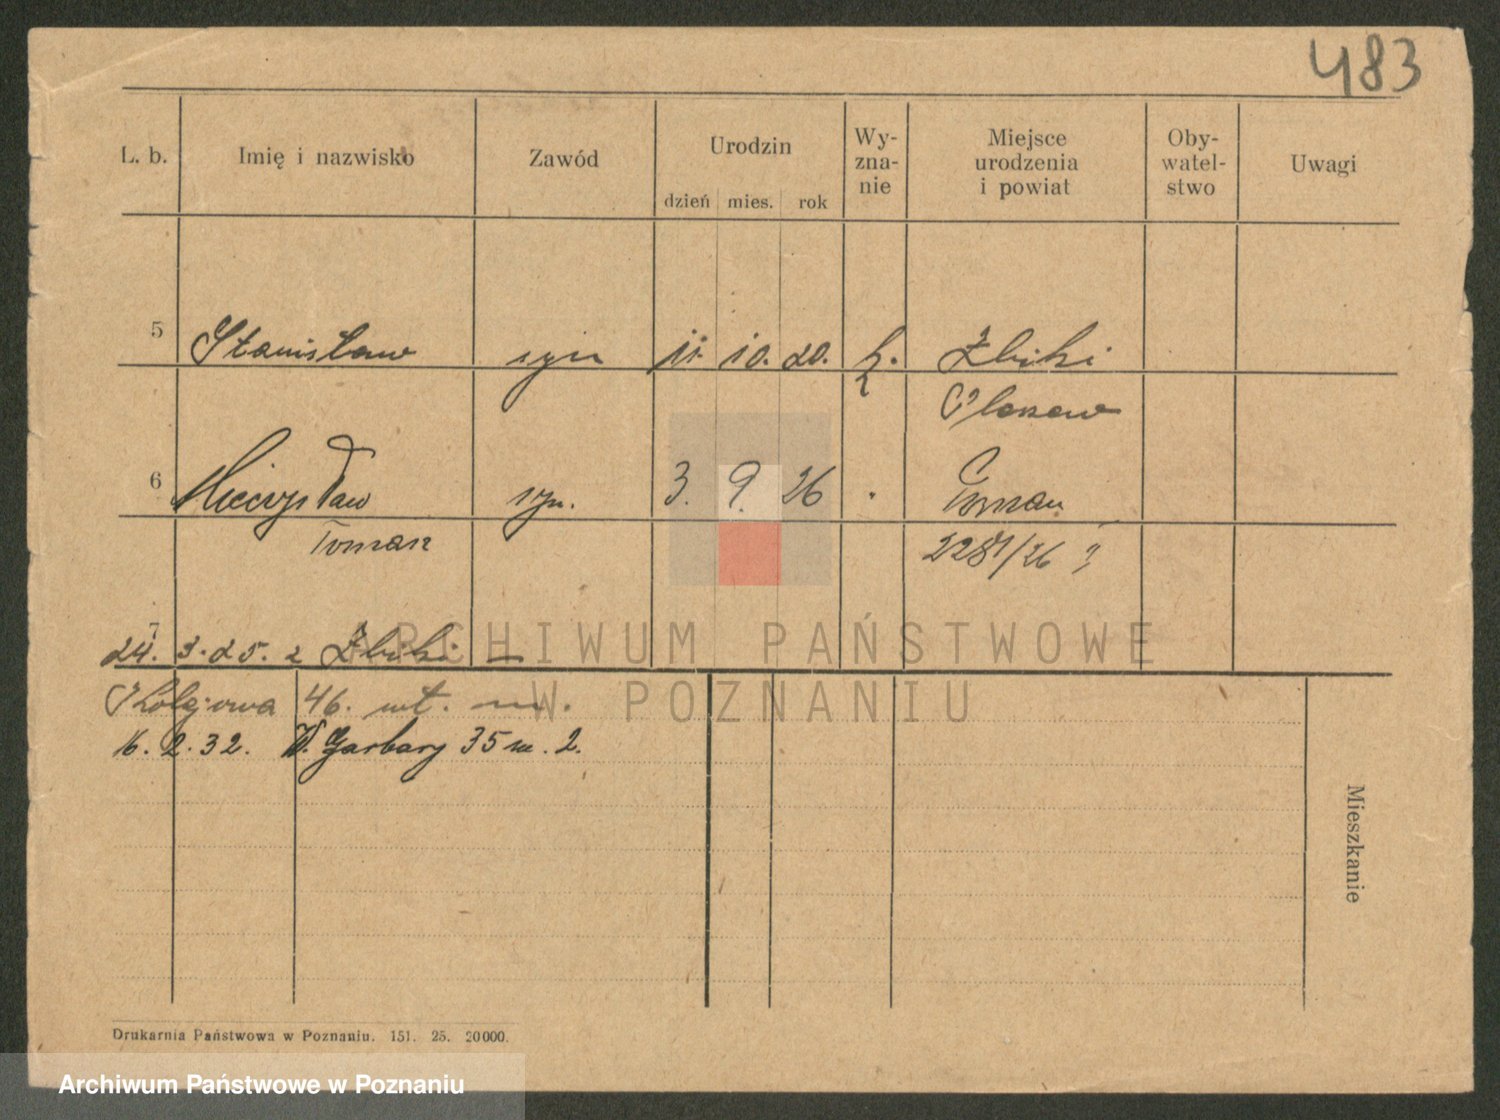 483
L. b. Imię i nazwisko Zawód Urodzin Wy-zna-nie Miejsce urodzenia i powiat Oby-watel-stwo Uwagi
dzień mies. rok
5 Stanisław syn 11. 10. 20. k. Żbiki
6 Mieczysław syn. 3. 9. 26 Poznań
Roman 2281/26
7
24. 3. 25. z Żbiki
ARCHIWUM PAŃSTWOWE
W POZNANIU
Kolejowa 46.
16. 2. 32. W. Garbary 35 m. 2.
Mieszkanie
Drukarnia Państwowa w Poznaniu. 151. 25. 20000.
Archiwum Państwowe w Poznaniu